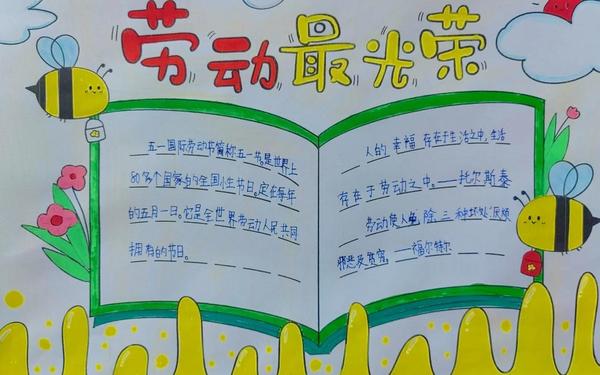 劳动最光荣
五一国际劳动节简称五一节,是世界上
80多个国家的全国小生节日。定在每年
的五月一日。它是全世界劳动人民共同
拥有的节日。
人的幸福存在于生活之中,生活
存在于劳动之中。——托尔斯泰
劳动使人免除三种坏处:厌烦
邪恶及贫穷。——福尔特尔